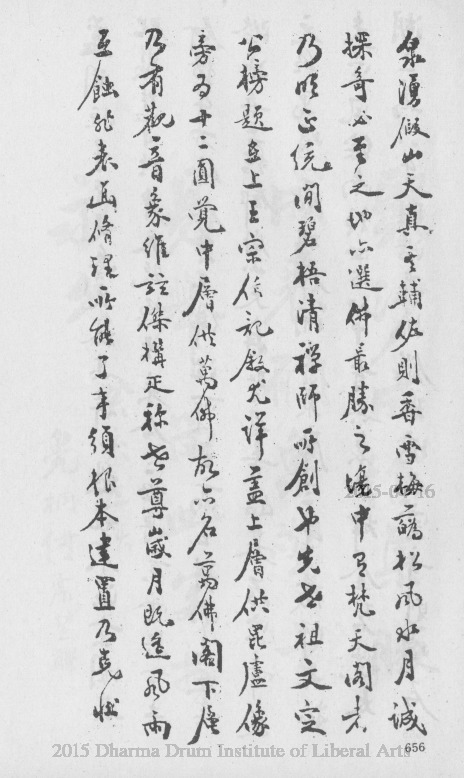 泉湧假山天真無輔佐則香雪梅龕松風水月誠
探奇必至之地亦選佛最勝之場中有梵天閣者
乃明正統間碧梧清禪師所創也先世祖文定
公榜題並上王宗伯記敘尤詳蓋上層供毘盧像
旁為十二圓覺中層供萬佛故亦名萬佛閣下層
乃有觀音象維茲傑構正稱世尊歲月既遙風雨
互蝕非裒函脩理所能了事須根本建置乃克
2015 Dharma Drum Institute of Liberal Arts
656